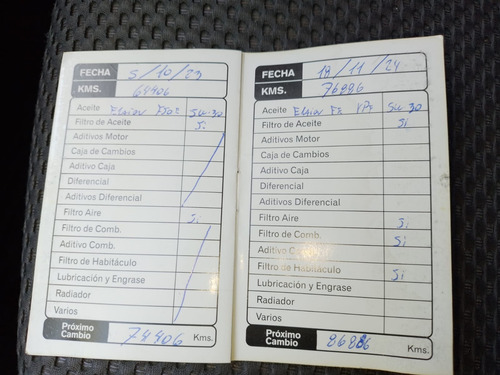 FECHA 5/10/23
KMS. 64406
Aceite Elaion 5W-30
Filtro de Aceite Si
Aditivos Motor
Caja de Cambios
Aditivo Caja
Diferencial
Aditivos Diferencial
Filtro Aire Si
Filtro de Comb.
Aditivo Comb.
Filtro de Habitáculo
Lubricación y Engrase
Radiador
Varios
Próximo Cambio 74406 Kms.
FECHA 18/11/24
KMS. 76886
Aceite Elaion 5W 30
Filtro de Aceite Si
Aditivos Motor
Caja de Cambios
Aditivo Caja
Diferencial
Aditivos Diferencial
Filtro Aire Si
Filtro de Comb. Si
Aditivo
Filtro de Habitáculo Si
Lubricación y Engrase
Radiador
Varios
Próximo Cambio 86886 Kms.